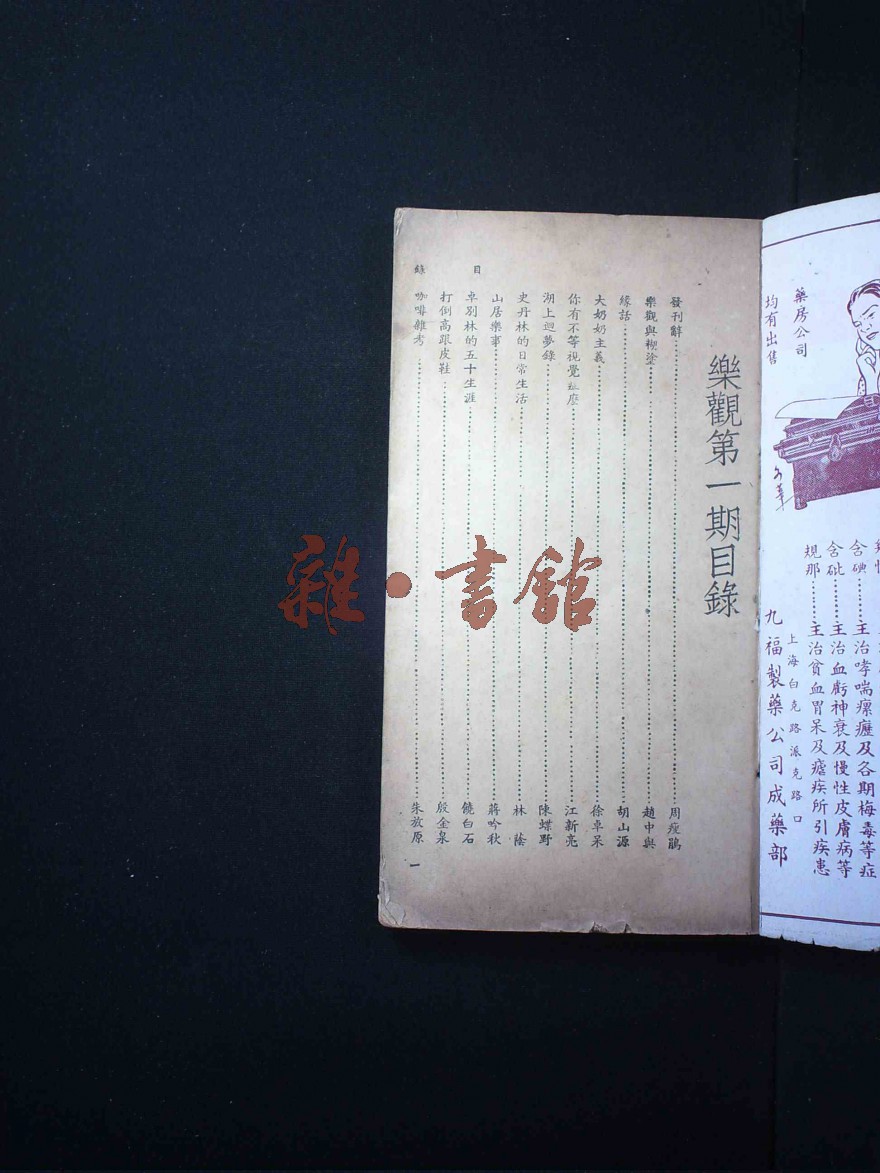 樂觀第一期目錄
發刊辭……周瘦鵑
樂觀與糊塗……趙中與
緣話……胡山源
大奶奶主義……徐卓呆
你有不等視覺症麽……江新亮
湖上迴夢錄……陳蝶野
史丹林的日常生活……林蔭
山居樂事……蔣吟秋
卓別林的五十生涯……饒白石
打倒高跟皮鞋……殷金泉
咖啡雜考……朱放原
目錄
一
雜·書館
含碘……主治哮喘瘰癧及各期梅毒等症
含砒……主治血虧神衰及慢性皮膚病等
規那……主治貧血胃呆及瘧疾所引疾患
藥房公司
均有出售
上海白克路派克路口
九福製藥公司成藥部